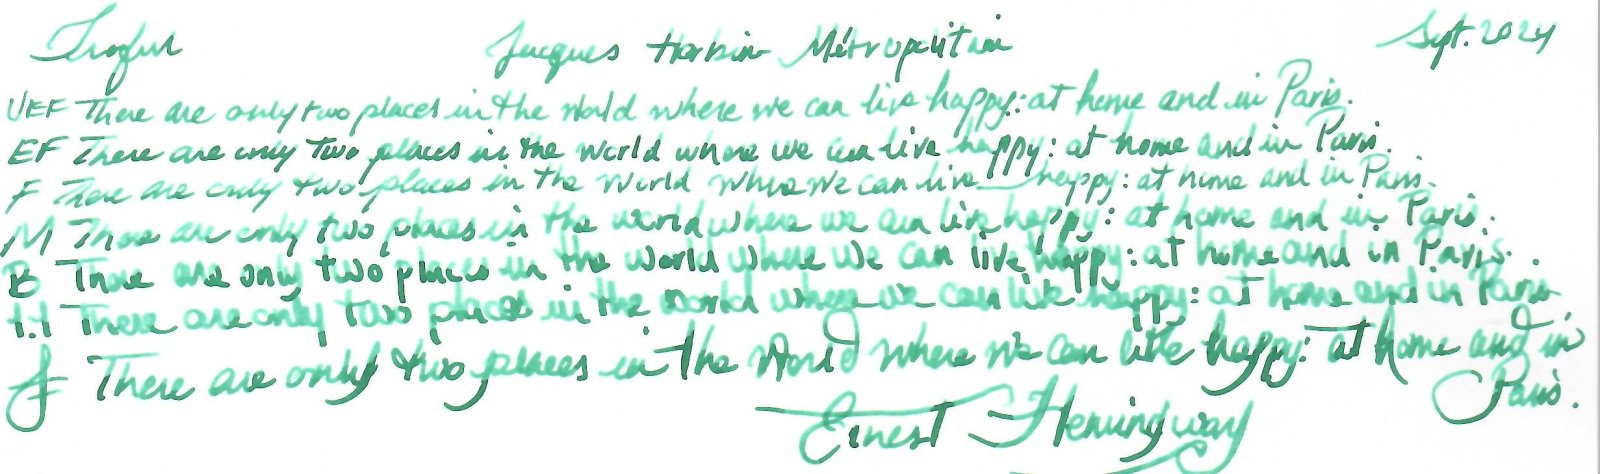 Troful Jacques Herbin Métropolitain Sept. 2024
UEF There are only two places in the world where we can live happy: at home and in Paris.
EF There are only two places in the world where we can live happy: at home and in Paris.
F There are only two places in the world where we can live happy: at home and in Paris.
M There are only two places in the world where we can live happy: at home and in Paris.
B There are only two places in the world where we can live happy: at home and in Paris.
1.1 There are only two places in the world where we can live happy: at home and in Paris
There are only two places in the world where we can live happy: at home and in
Paris.
Ernest Hemingway